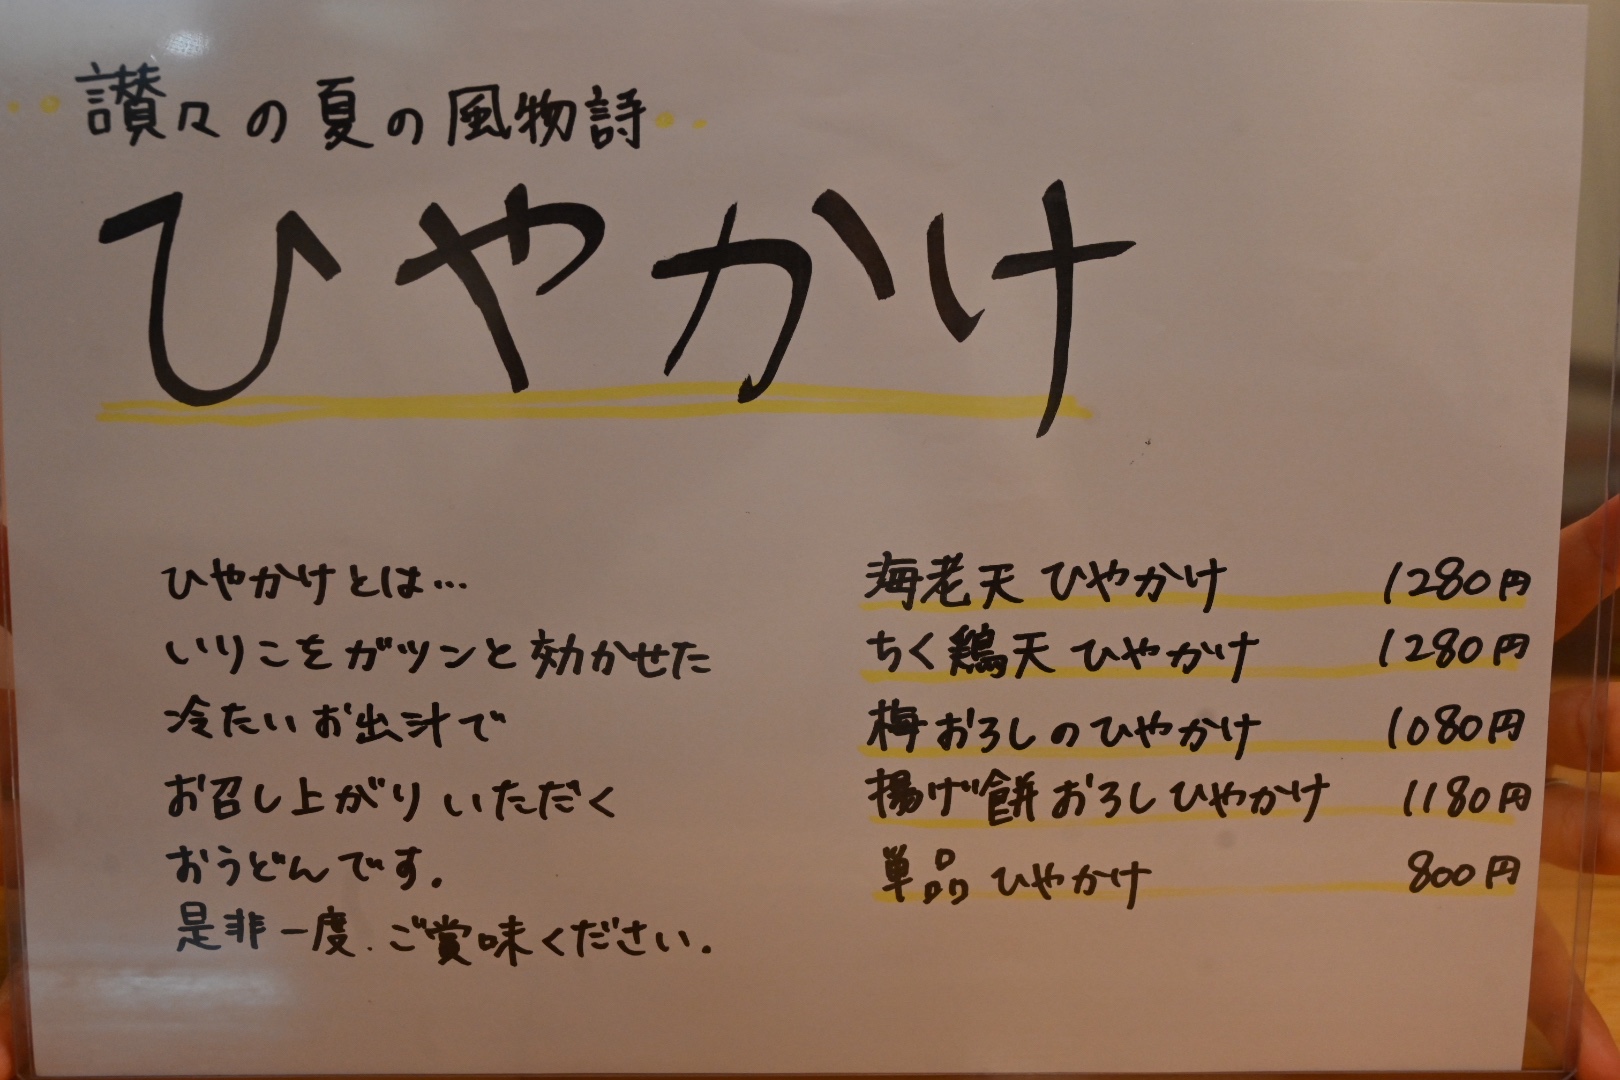 讃々の夏の風物詩
ひやかけ
ひやかけとは…
いりこをガツンと効かせた
冷たいお出汁で
お召し上がりいただく
おうどんです。
是非一度、ご賞味ください。
海老天ひやかけ 1280円
ちく鶏天ひやかけ 1280円
梅おろしのひやかけ 1080円
揚げ餅おろしひやかけ 1180円
単品ひやかけ 800円